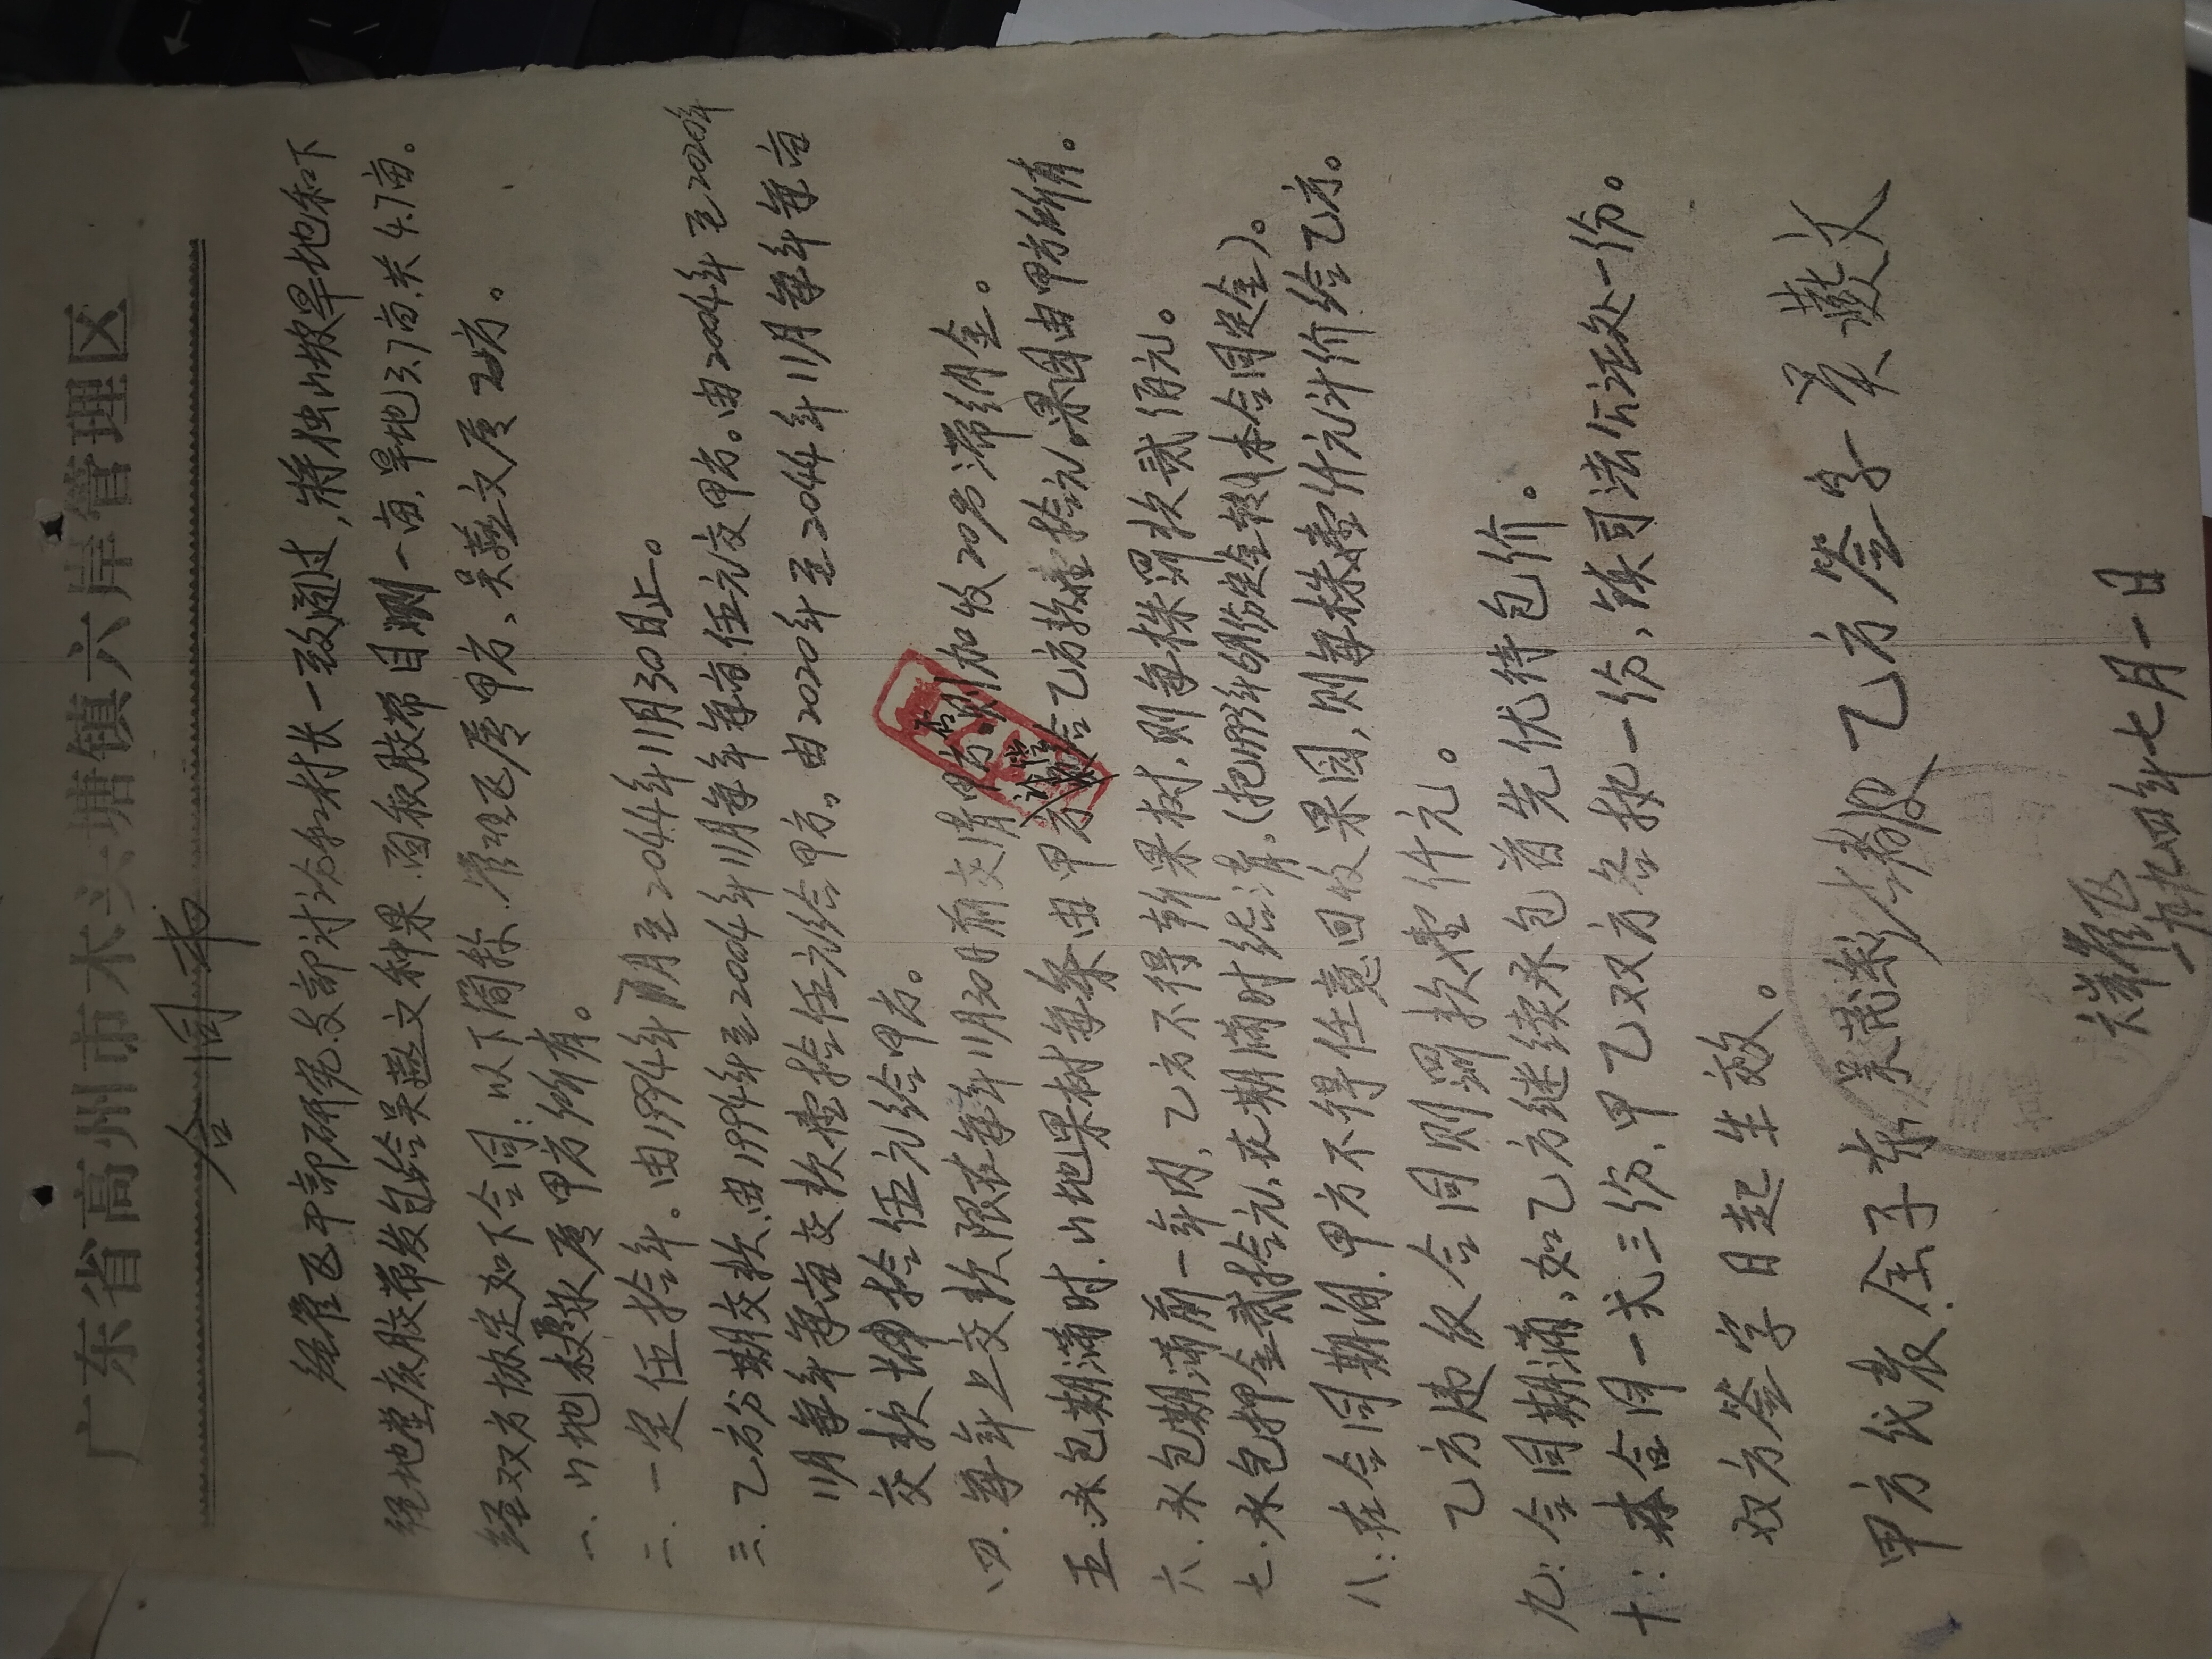 广东省高州市木头塘镇六岸管理区
合同书
经管区干部研究支部讨论和村长一致通过,将独山坡旱地和下
径地堂底胶带发包给吴燕文种果.面积胶带目测一亩.旱地3.7亩.共4.7亩。
经双方协定如下合同:以下简称.管理区属甲方、吴燕文属乙方。
一、山地权永属甲方所有。
二.一定伍拾年。由1994年 月至2044年11月30日止。
三.乙方分期交款.由1994年至2004年11月每年每亩伍元交甲方。由2004年至2020年
11月每年每亩交款壹拾伍元给甲方。由2020年至2044年11月每年每亩
交款 拾伍元给甲方。
四.每年上交款限在每年11月30日前交清甲方。否则加收20%滞纳金。
五:承包期满时.山地果树每条由甲方 给乙方款壹拾元.果园由甲方所有。
六.承包期满前一年内,乙方不得斩果树.则每株罚款贰佰元。
七.承包押金贰拾元.在期满时结清.(把1993年6月份定金转本合同定金)。
八:在合同期间.甲方不得任意回收果园,则每株壹仟元计价给乙方。
乙方违反合同则罚款壹仟元。
九:合同期满,如乙方继续承包首先优待包价。
十:本合同一式三份.甲乙双方各执一份,镇司法公证处一份。
双方签字日起生效。
甲方代表 东 吴 乙方签字 吴燕文
管区
九四年七月一日